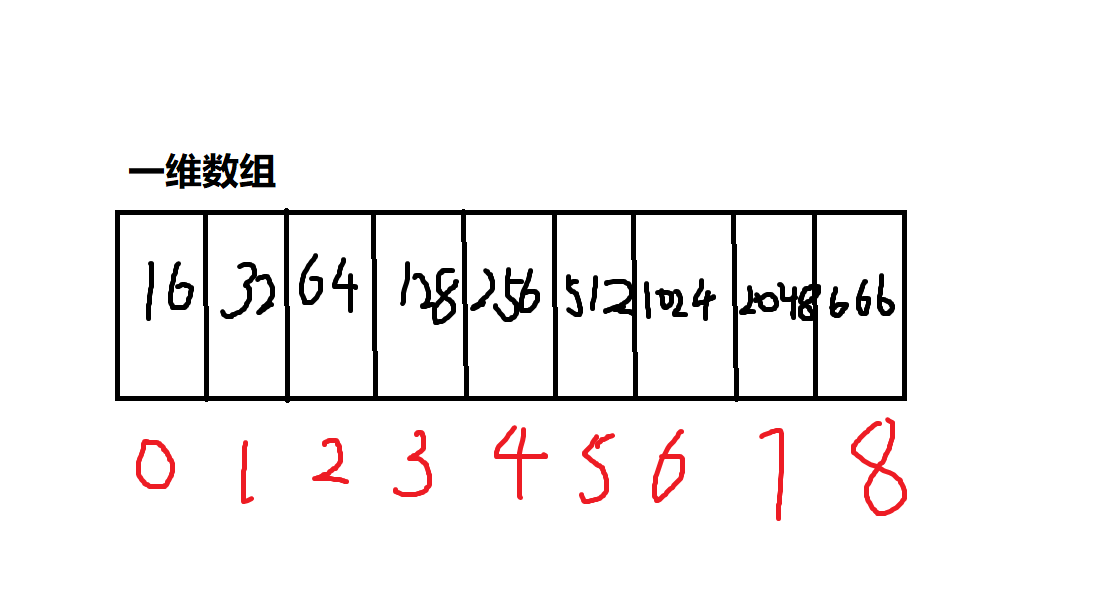 一维数组
16 32 64 128 256 512 1024 2048 666
0 1 2 3 4 5 6 7 8